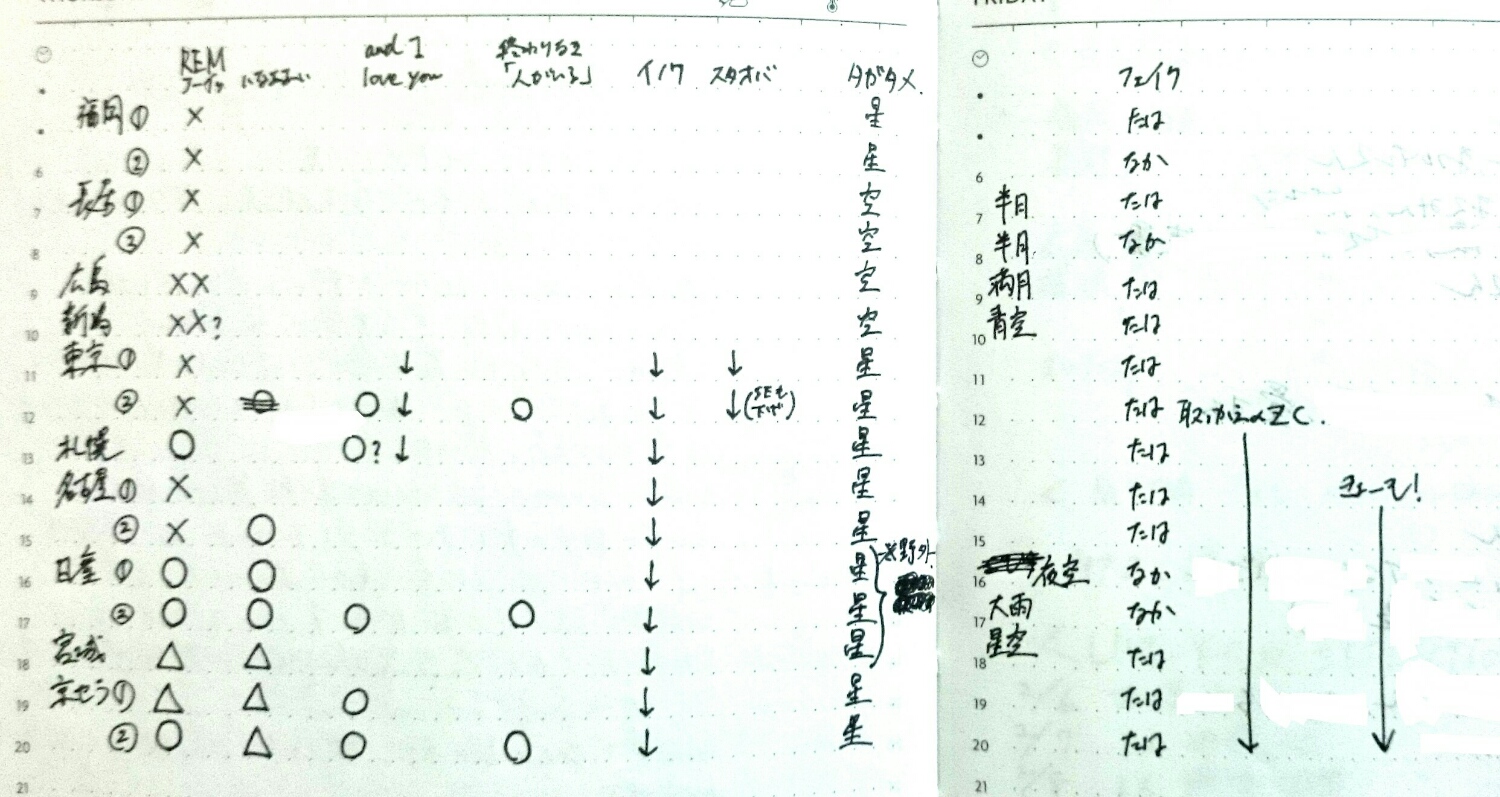 FRIDAY
REM and I 終わりなき
love you 「人がいる」 イノワ スタオバ タガタメ フェイク
福岡① × 星 たは
② × 星 なか
6 6
長居① × 空 半月 たは
7 7
② × 空 半月 なか
8 8
広島 ×× 空 満月 たは
9 9
新潟 ××? 空 青空 たは
10 10
東京① × ↓ ↓ ↓ 星 たは
11 11
② × ○ ○↓ ○ ↓ ↓(SEも下げ) 星 たは
12 12
札幌 ○ ○?↓ ↓ 星 たは
13 13
名古屋① × ↓ 星 たは
14 14
② × ○ ↓ 星 たは
15 15
日産① ○ ○ ↓ 星 ※野外 夜空 なか
16 16
② ○ ○ ○ ○ ↓ 星 大雨 なか
17 17
宮城 △ △ ↓ 星 星空 たは
18 18
京セラ① △ △ ○ ↓ 星 たは
19 19
② ○ △ ○ ○ ↓ 星 たは
20 20
21 21